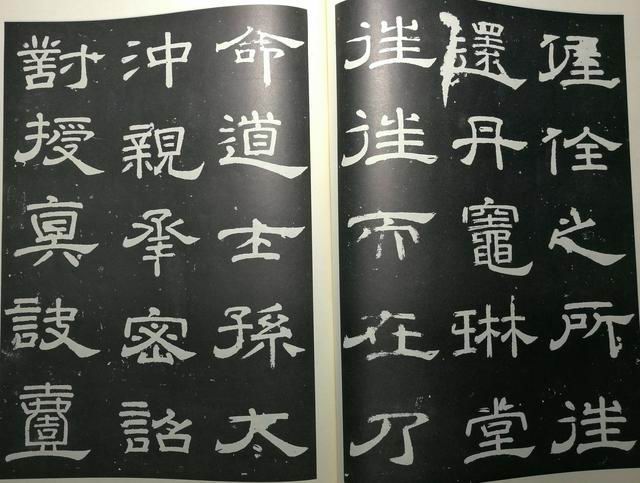 偓佺之所往
還丹竈琳堂
往往而在乃
命道士孫太
沖親承密詔
對授真訣壹